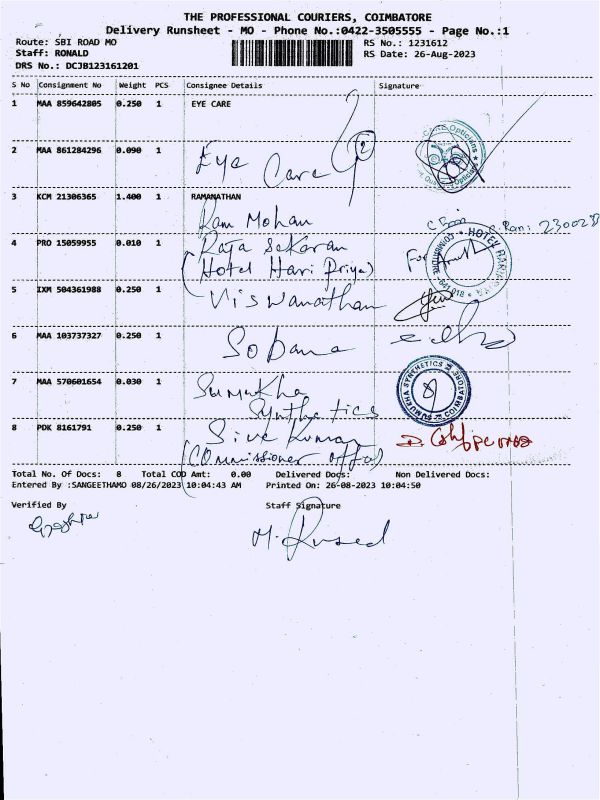 THE PROFESSIONAL COURIERS, COIMBATORE
Delivery Runsheet - MO - Phone No.:0422-3505555 - Page No.:1
Route: SBI ROAD MO
RS No.: 1231612
Staff: RONALD
RS Date: 26-Aug-2023
DRS No.: DCJB123161201
S No Consignment No Weight PCS Consignee Details Signature
1 MAA 859642805 0.250 1 EYE CARE
2 MAA 861284296 0.090 1
Eye Care
3 KCM 21306365 1.400 1 RAMANATHAN
Ram Mohan
4 PRO 15059955 0.010 1 Raja Sekaran
(Hotel Hari Priya)
5 IXM 504361988 0.250 1 Viswanathan
6 MAA 103737327 0.250 1
Sobana
7 MAA 570601654 0.030 1 Sumukha
Synthetics
SUMUKHA SYNTHETICS COIMBATORE
8 PDK 8161791 0.250 1 Siva Kumar
(Commissioner office)
Total No. Of Docs: 8 Total COD Amt: 0.00 Delivered Docs: Non Delivered Docs:
Entered By :SANGEETHAMO 08/26/2023 10:04:43 AM Printed On: 26-08-2023 10:04:50
Verified By Staff Signature